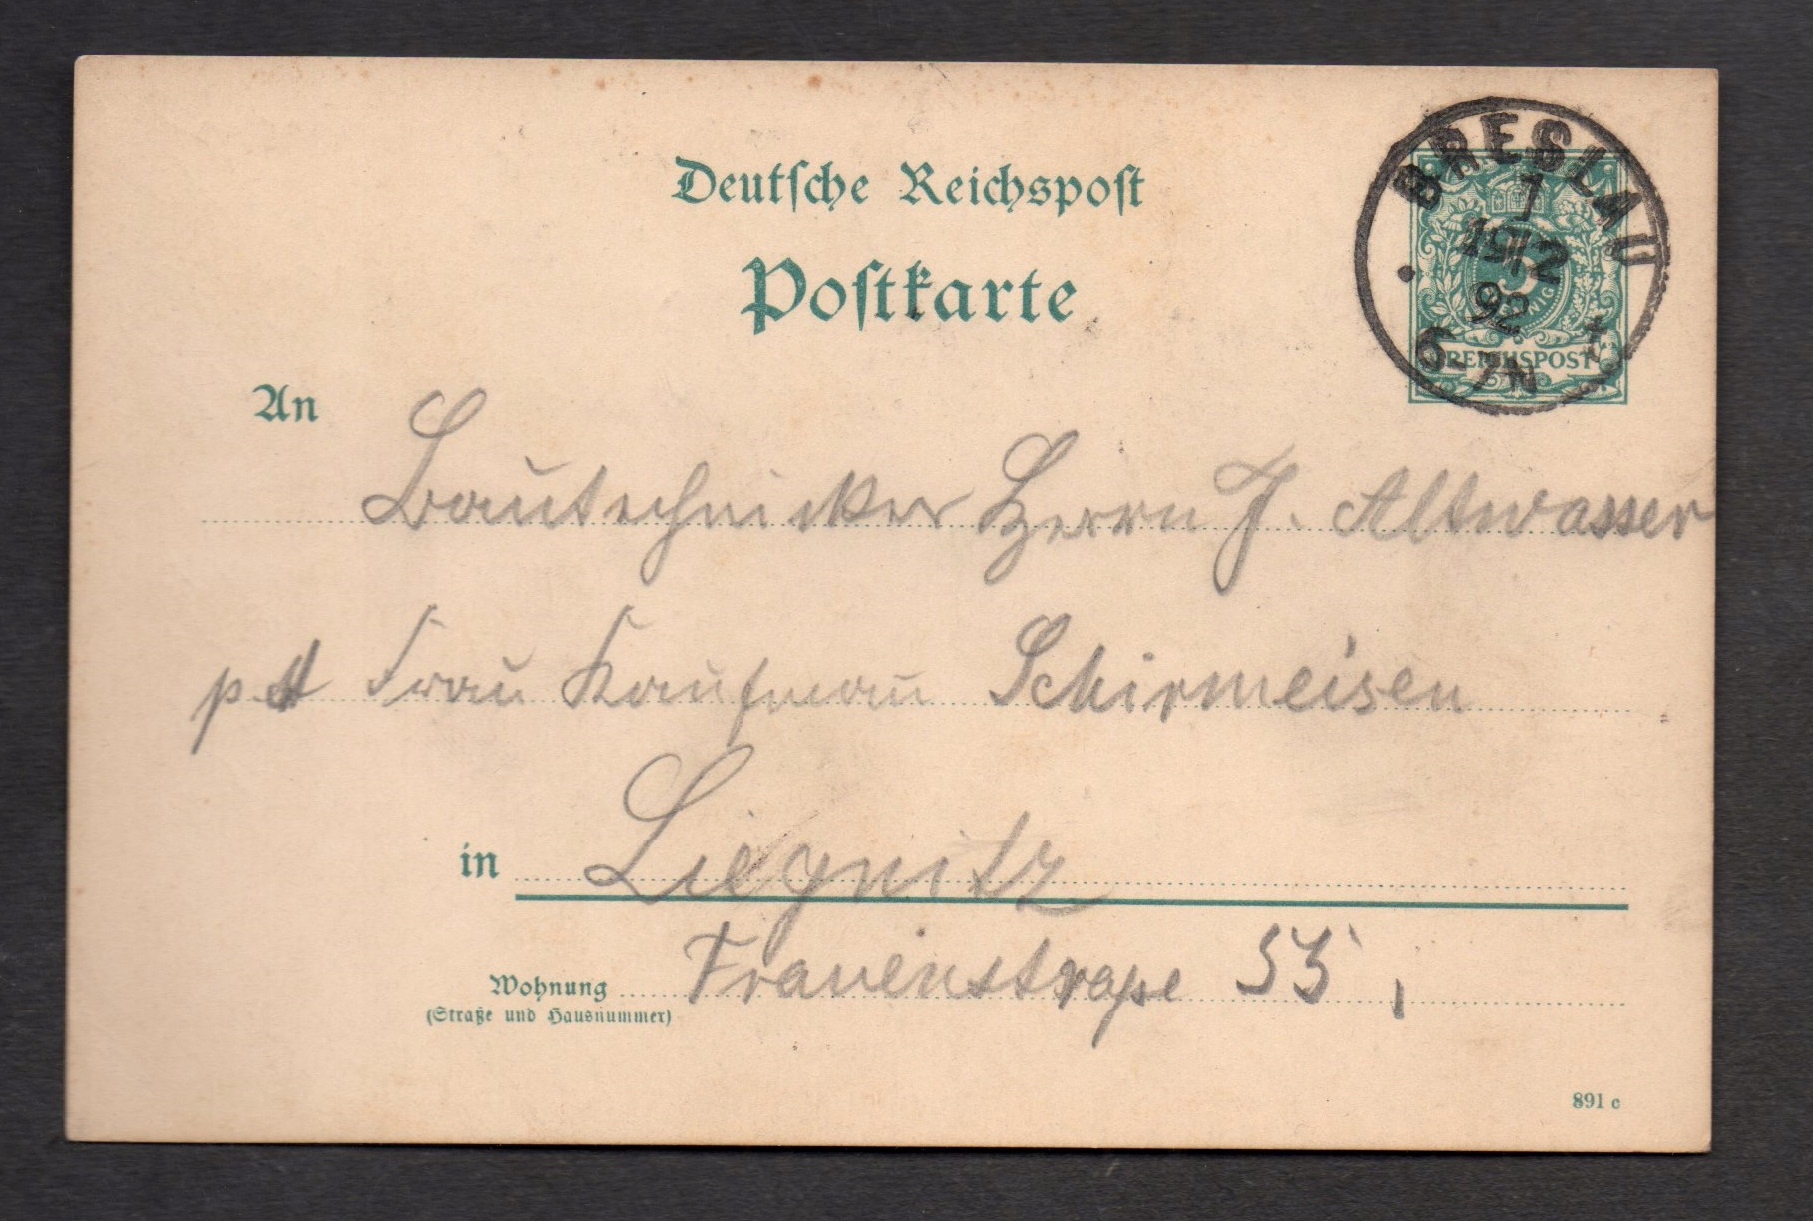 Deutsche Reichspost
Postkarte
BRESLAU
1
19 12
92
6-7N
5
PFENNIG
REICHSPOST
An
Bautechnicker Herrn J. Altwasser
Frau Kaufmann Schirmeisen
in Liegnitz
Wohnung Frauenstraße 53
(Straße und Hausnummer)
891 c